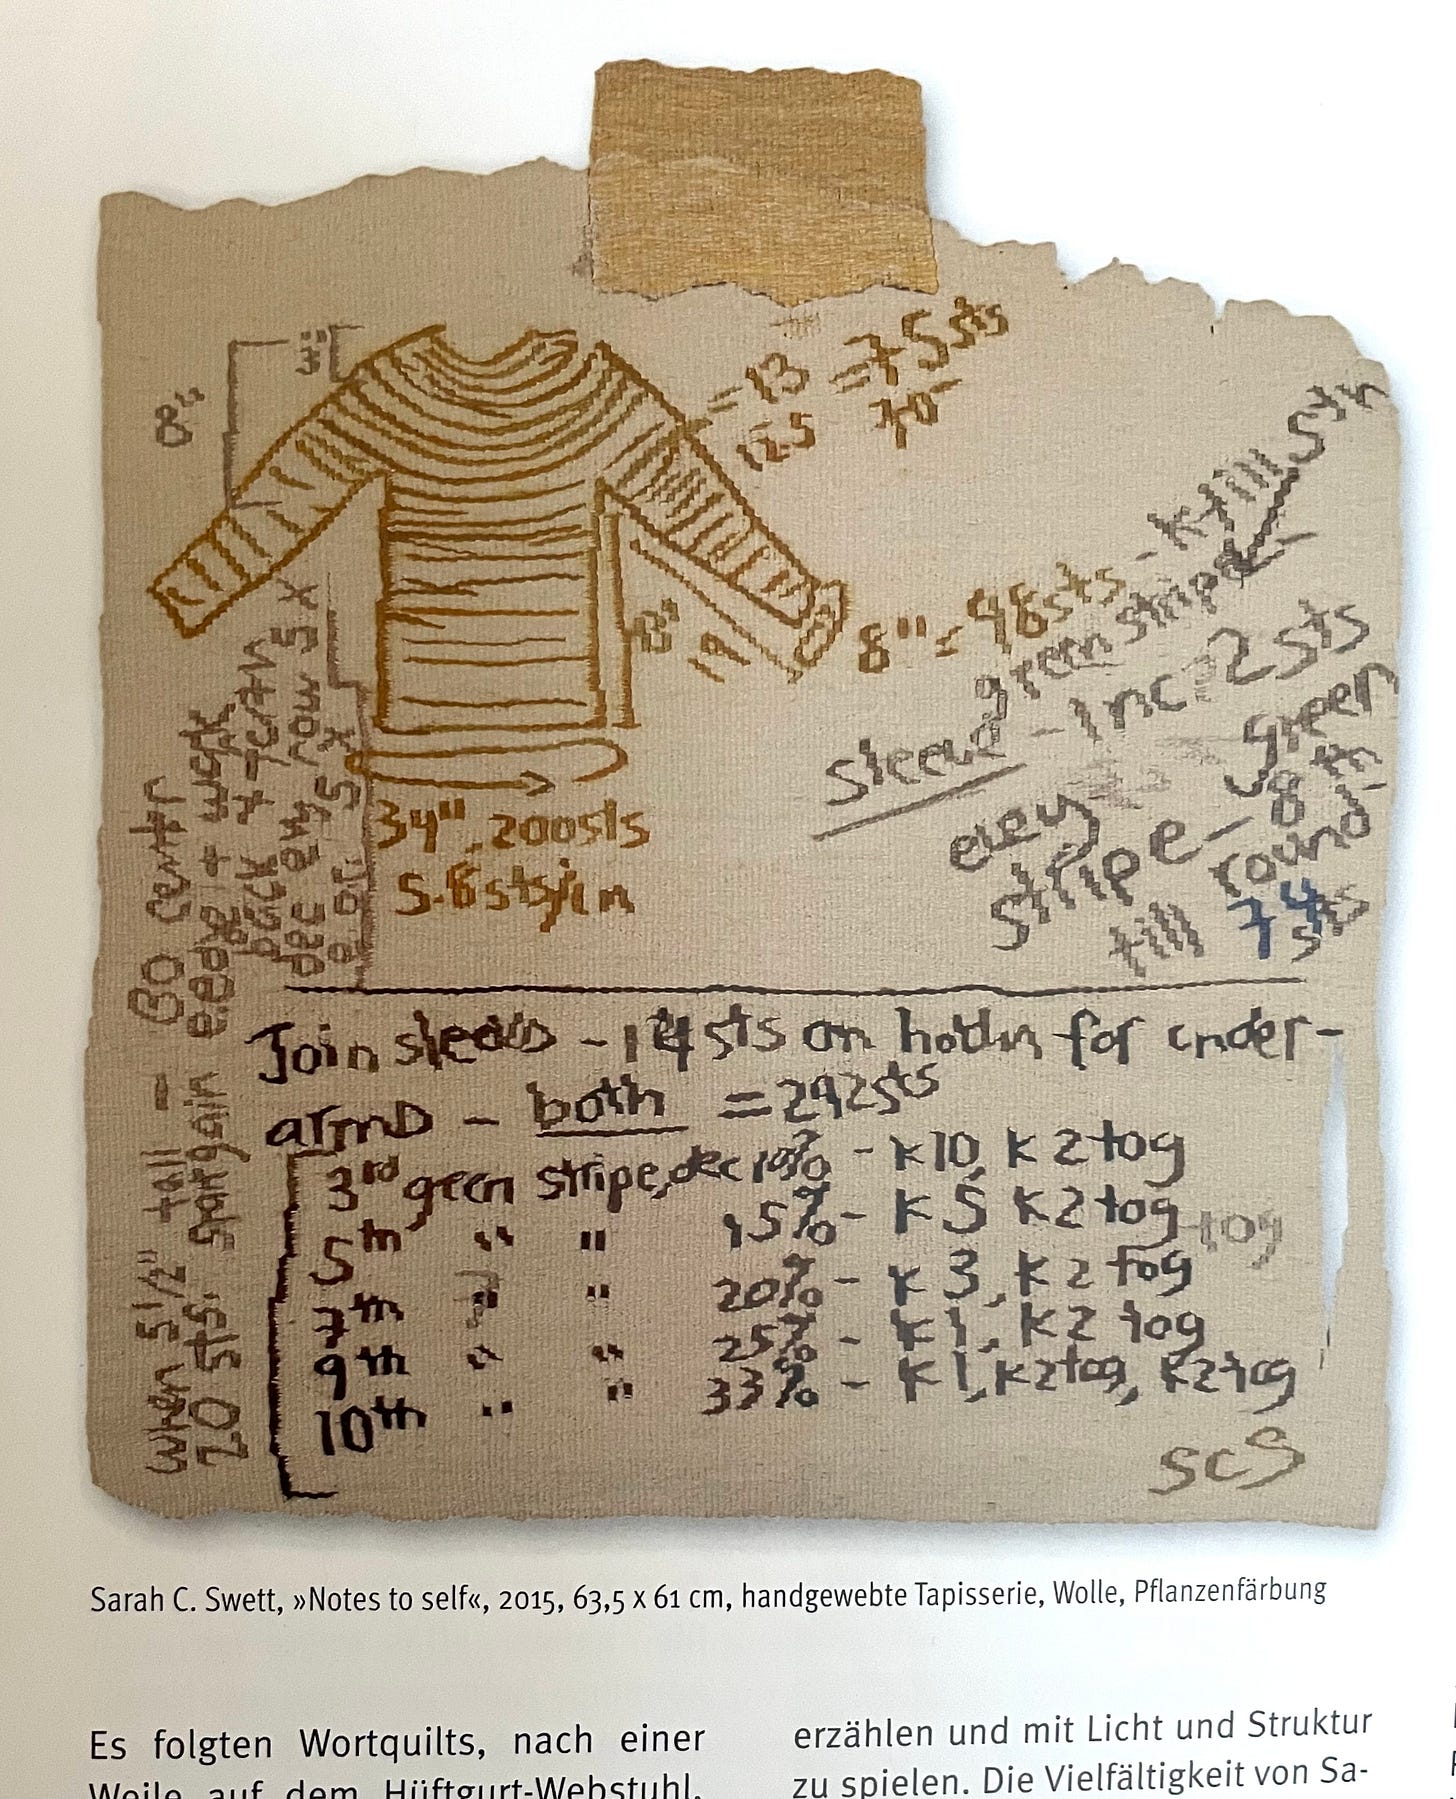 3"
8"
= 13 = 75 sts
12.5 70
8" = 48 sts - k till 5th
green stripe
8"
= 9
34" . 200 sts
5.8 sts/in
sleeve - inc 2 sts
every green
stripe - 8th
round
till 74 sts
when 5 1/2" tall - BO center
20 sts.
back
dec every row 5 X
5 X
Join sleeves - 14 sts on holder for under-
arms - both = 292 sts
3rd green stripe, dec 10% - k 10, k 2 tog
5th " " 15% - k 5 k2 tog tog
7th " " 20% - k 3, k 2 tog
9th " " 25% - k 1, k 2 tog
10th " " 33% - k 1, k2tog, k2tog
SCS
Sarah C. Swett, »Notes to self«, 2015, 63,5 x 61 cm, handgewebte Tapisserie, Wolle, Pflanzenfärbung
Es folgten Wortquilts, nach einer
Weile auf dem Hüftgurt-Webstuhl,
erzählen und mit Licht und Struktur
zu spielen. Die Vielfältigkeit von Sa-